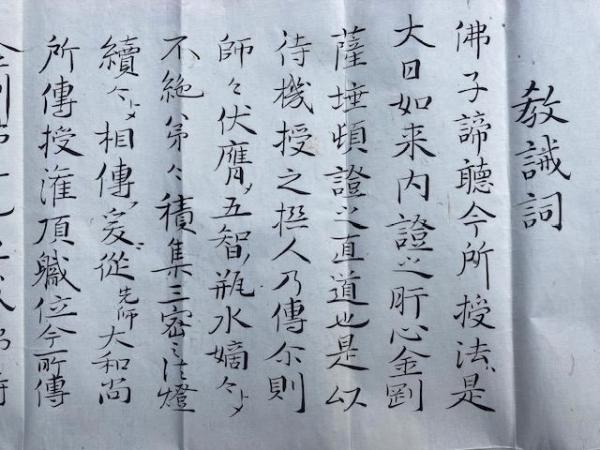 教誡詞
佛子諦聽今所授法是
大日如来内證之肝心金剛
薩埵頓證之直道也是以
待機授之撰人乃傳尒則
師々伏膺五智瓶水嫡々
不絶苐々積集三密之法燈
續々相傳爰從先師大和尚
所傳授灌頂軄位今所傳